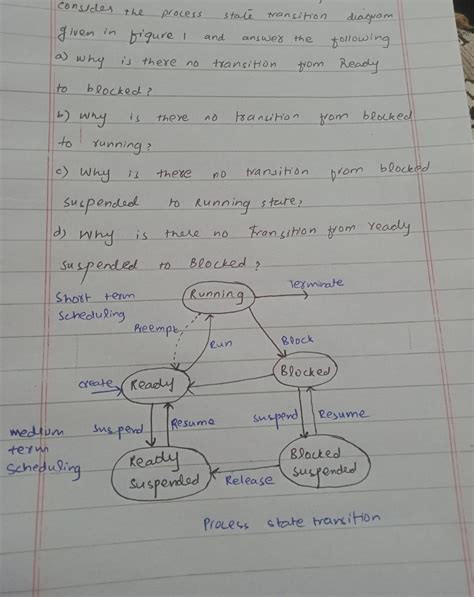 Consider the process state transition diagram
given in figure 1 and answer the following
a) Why is there no transition from Ready
to blocked?
b) Why is there no transition from blocked
to running?
c) Why is there no transition from blocked
suspended to Running state?
d) Why is there no Transition from ready
suspended to Blocked?
Short term
Scheduling
Running
Terminate
Preempt
Run
Block
Blocked
create
Ready
suspend
Resume
suspend
Resume
medium
term
Scheduling
Ready
suspended
Release
Blocked
suspended
Process state transition